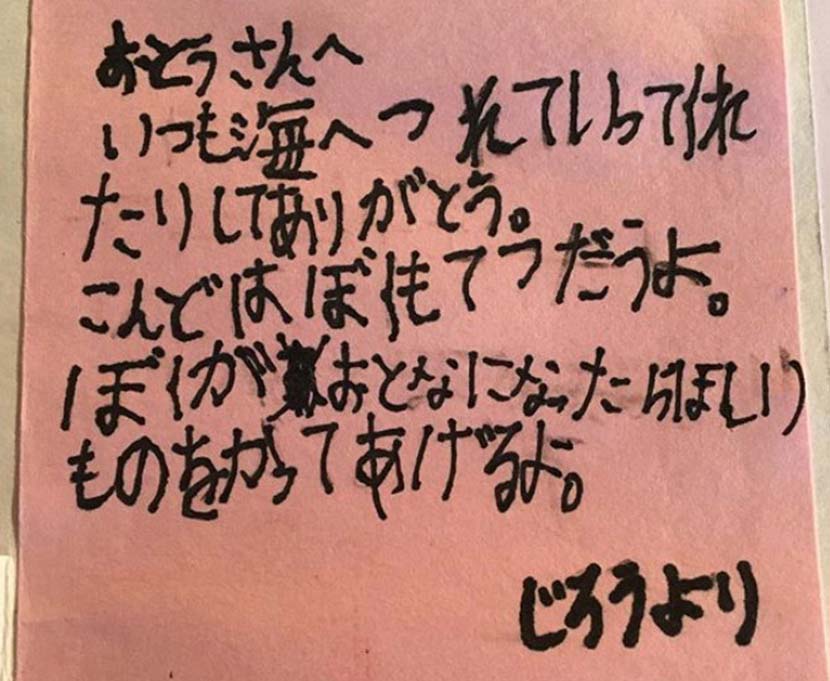 おとうさんへ
いつも海へつれていってくれ
たりしてありがとう。
こんどはぼくもてつだうよ。
ぼくがおとなになったらほしい
ものをかってあげるよ。
じろうより